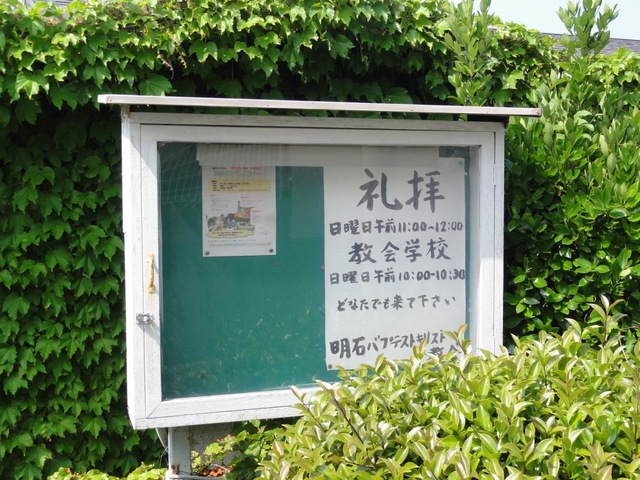 礼拝
日曜日午前11:00~12:00
教会学校
日曜日午前10:00-10:30
どなたでも来て下さい
明石バプテストキリスト
教会